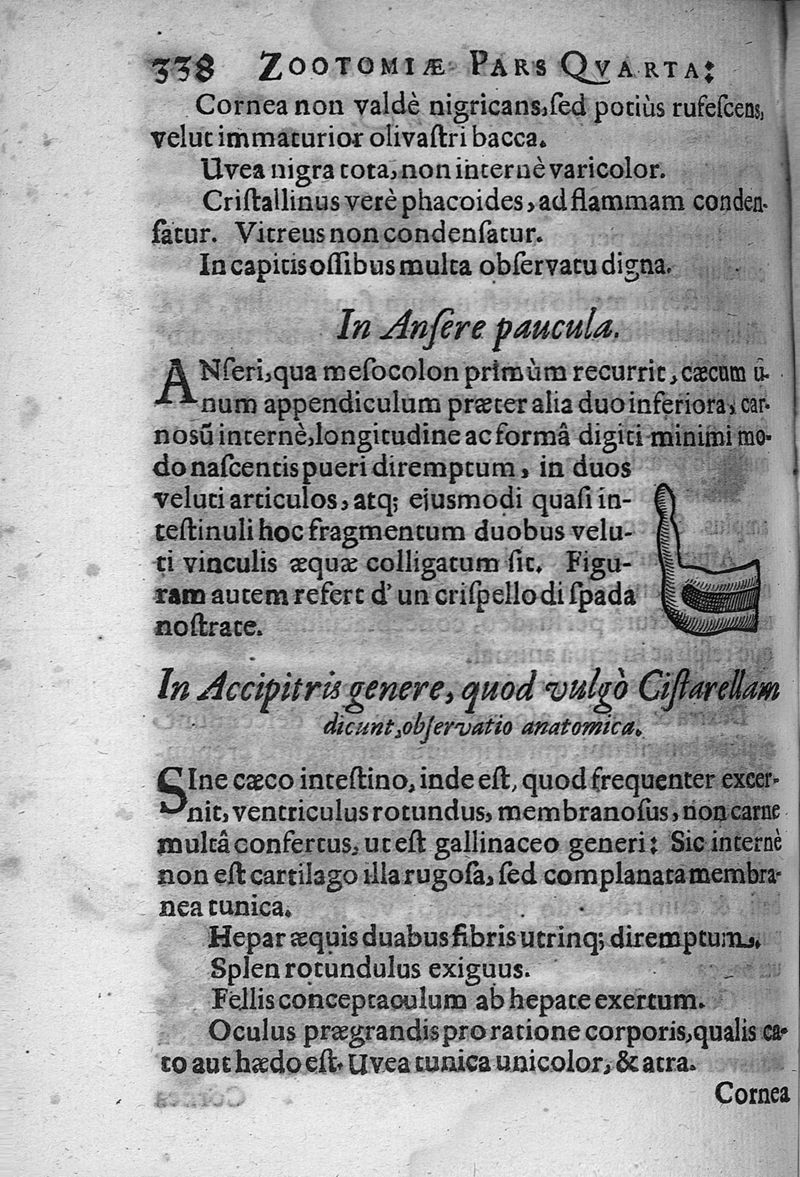 338 ZOOTOMIÆ PARS QVARTA:
Cornea non valdè nigricans, ſed potiùs rufeſcens,
velut immaturior olivaſtri bacca.
Uvea nigra tota, non internè varicolor.
Criſtallinus verè phacoides, ad flammam conden-
ſatur. Vitreus non condenſatur.
In capitis oſſibus multa obſervatu digna.
In Anſere paucula.
ANſeri, qua meſocolon primùm recurrit, cæcum ū-
num appendiculum præter alia duo inferiora, car-
nosū internè, longitudine ac formâ digiti minimi mo-
do naſcentis pueri diremptum, in duos
veluti articulos, atq; ejusmodi quaſi in-
teſtinuli hoc fragmentum duobus velu-
ti vinculis æquæ colligatum ſit. Figu-
ram autem refert d' un criſpello di ſpada
noſtrate.
In Accipitris genere, quod vulgò Ciſtarellam
dicunt, obſervatio anatomica.
SIne cæco inteſtino, inde eſt, quod frequenter excer-
nit, ventriculus rotundus, membranoſus, non carne
multâ confertus, ut eſt gallinaceo generi: Sic internè
non eſt cartilago illa rugoſa, ſed complanata membra-
nea tunica.
Hepar æquis duabus fibris utrinq; diremptum.
Splen rotundulus exiguus.
Fellis conceptaculum ab hepate exertum.
Oculus prægrandis pro ratione corporis, qualis ca-
to aut hædo eſt. Uvea tunica unicolor, & atra.
Cornea